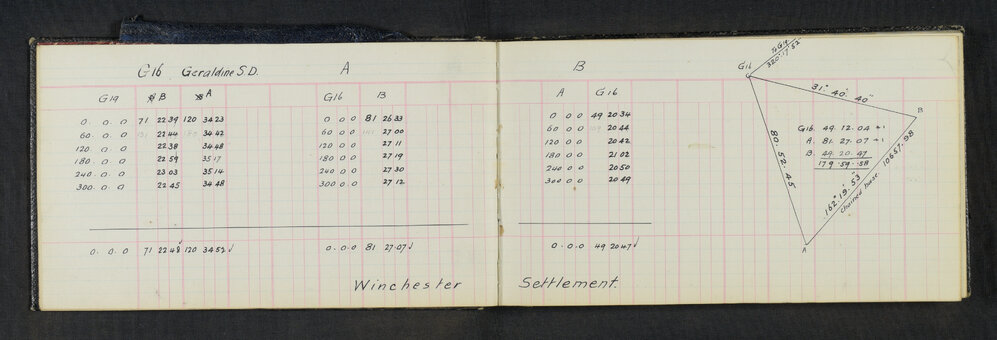 G16 Geraldine S.D. A
G19 B A G16 B
0. 0. 0 71 22 39 120 34 23 0 0 0 81 26 33
60. 0. 0 22 44 34 42 60 0 0 27 00
120. 0. 0 22 38 34 48 120 0 0 27 11
180. 0. 0 22 59 35 17 180 0 0 27 19
240. 0. 0 23 03 35 14 240 0 0 27 30
300. 0. 0 22 45 34 48 300 0 0 27 12
0. 0. 0 71 22 48 120 34 52 0. 0. 0 81 27.07
Winchester
B
A G16
0 0 0 49 20 34
60 0 0 20 44
120 0 0 20 42
180 0 0 21 02
240 0 0 20 50
300 0 0 20 49
0. 0. 0 49 20 47
Settlement.
320° 17' 52"
G16
31° 40' 40"
B
G16. 49. 12. 04 +1
A. 81. 27. 07 +1
B. 49. 20. 47
179. 59. 58
80. 52. 45
162° 19' 53
10657.98
Chained base
A